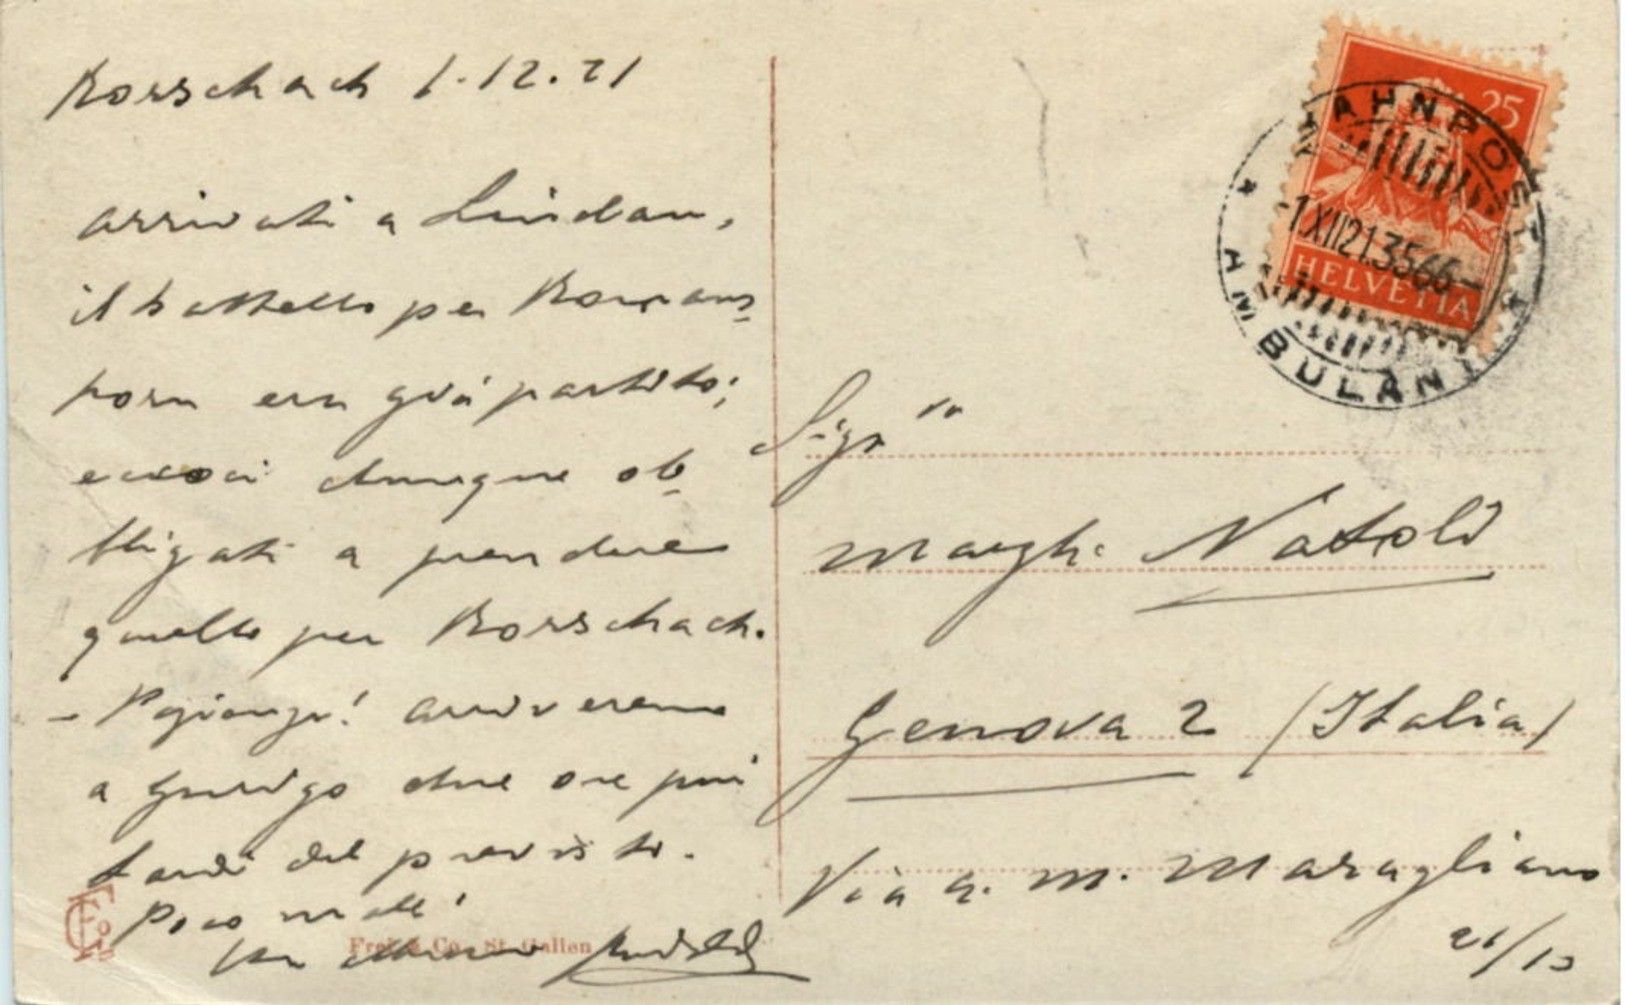 Rorschach 1.12.21
arrivati a Lindau,
il battello per Romans-
horn era già partito;
eccoci dunque ob-
bligati a prendere
quello per Rorschach.
- Pazienza! arriveremo
a Zurigo due ore più
tardi del previsto.
Poco male!
Frei & Co., St. Gallen
25
HELVETIA
BAHNPOST
-1.XII21.3566-
AMBULANT
Sigra
Margh. Natoli
Genova 2 (Italia)
Via A. M. Maragliano
21/13